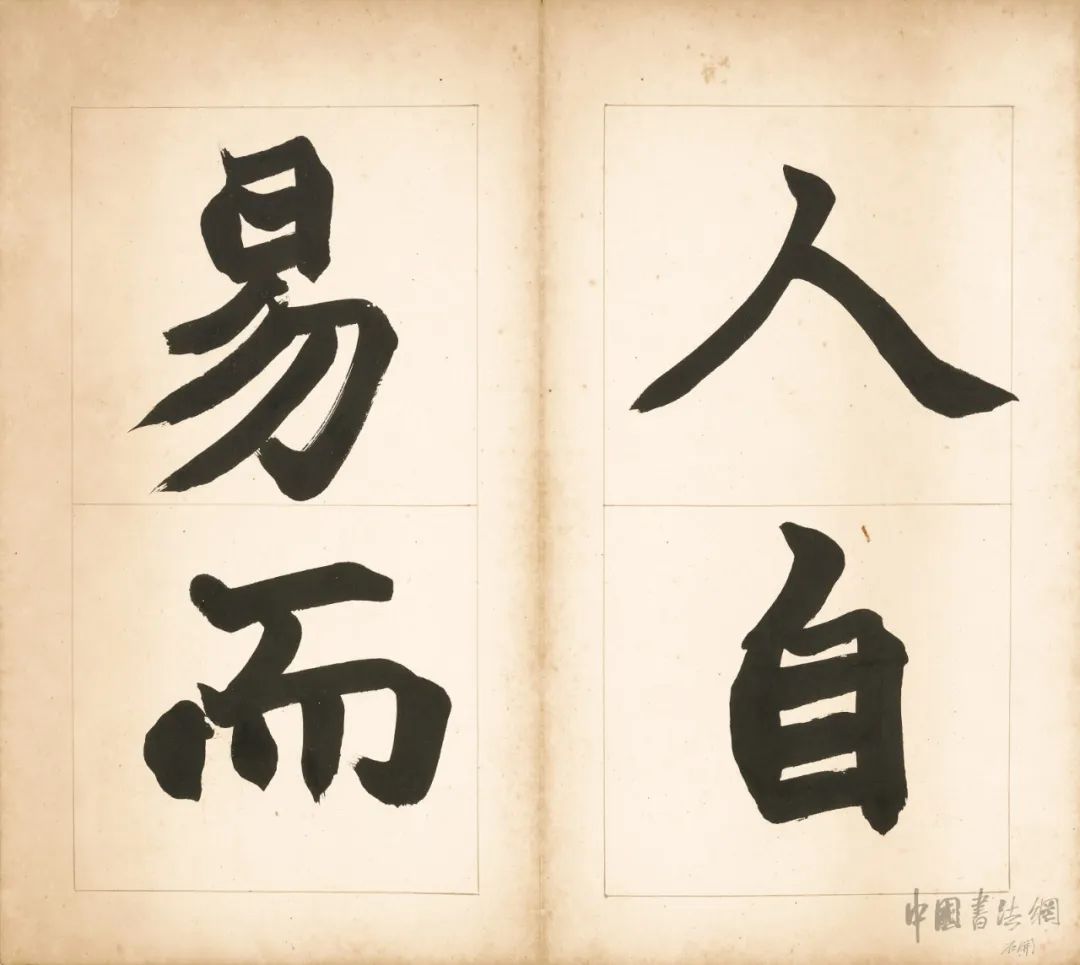 人自
易而
中國書法網